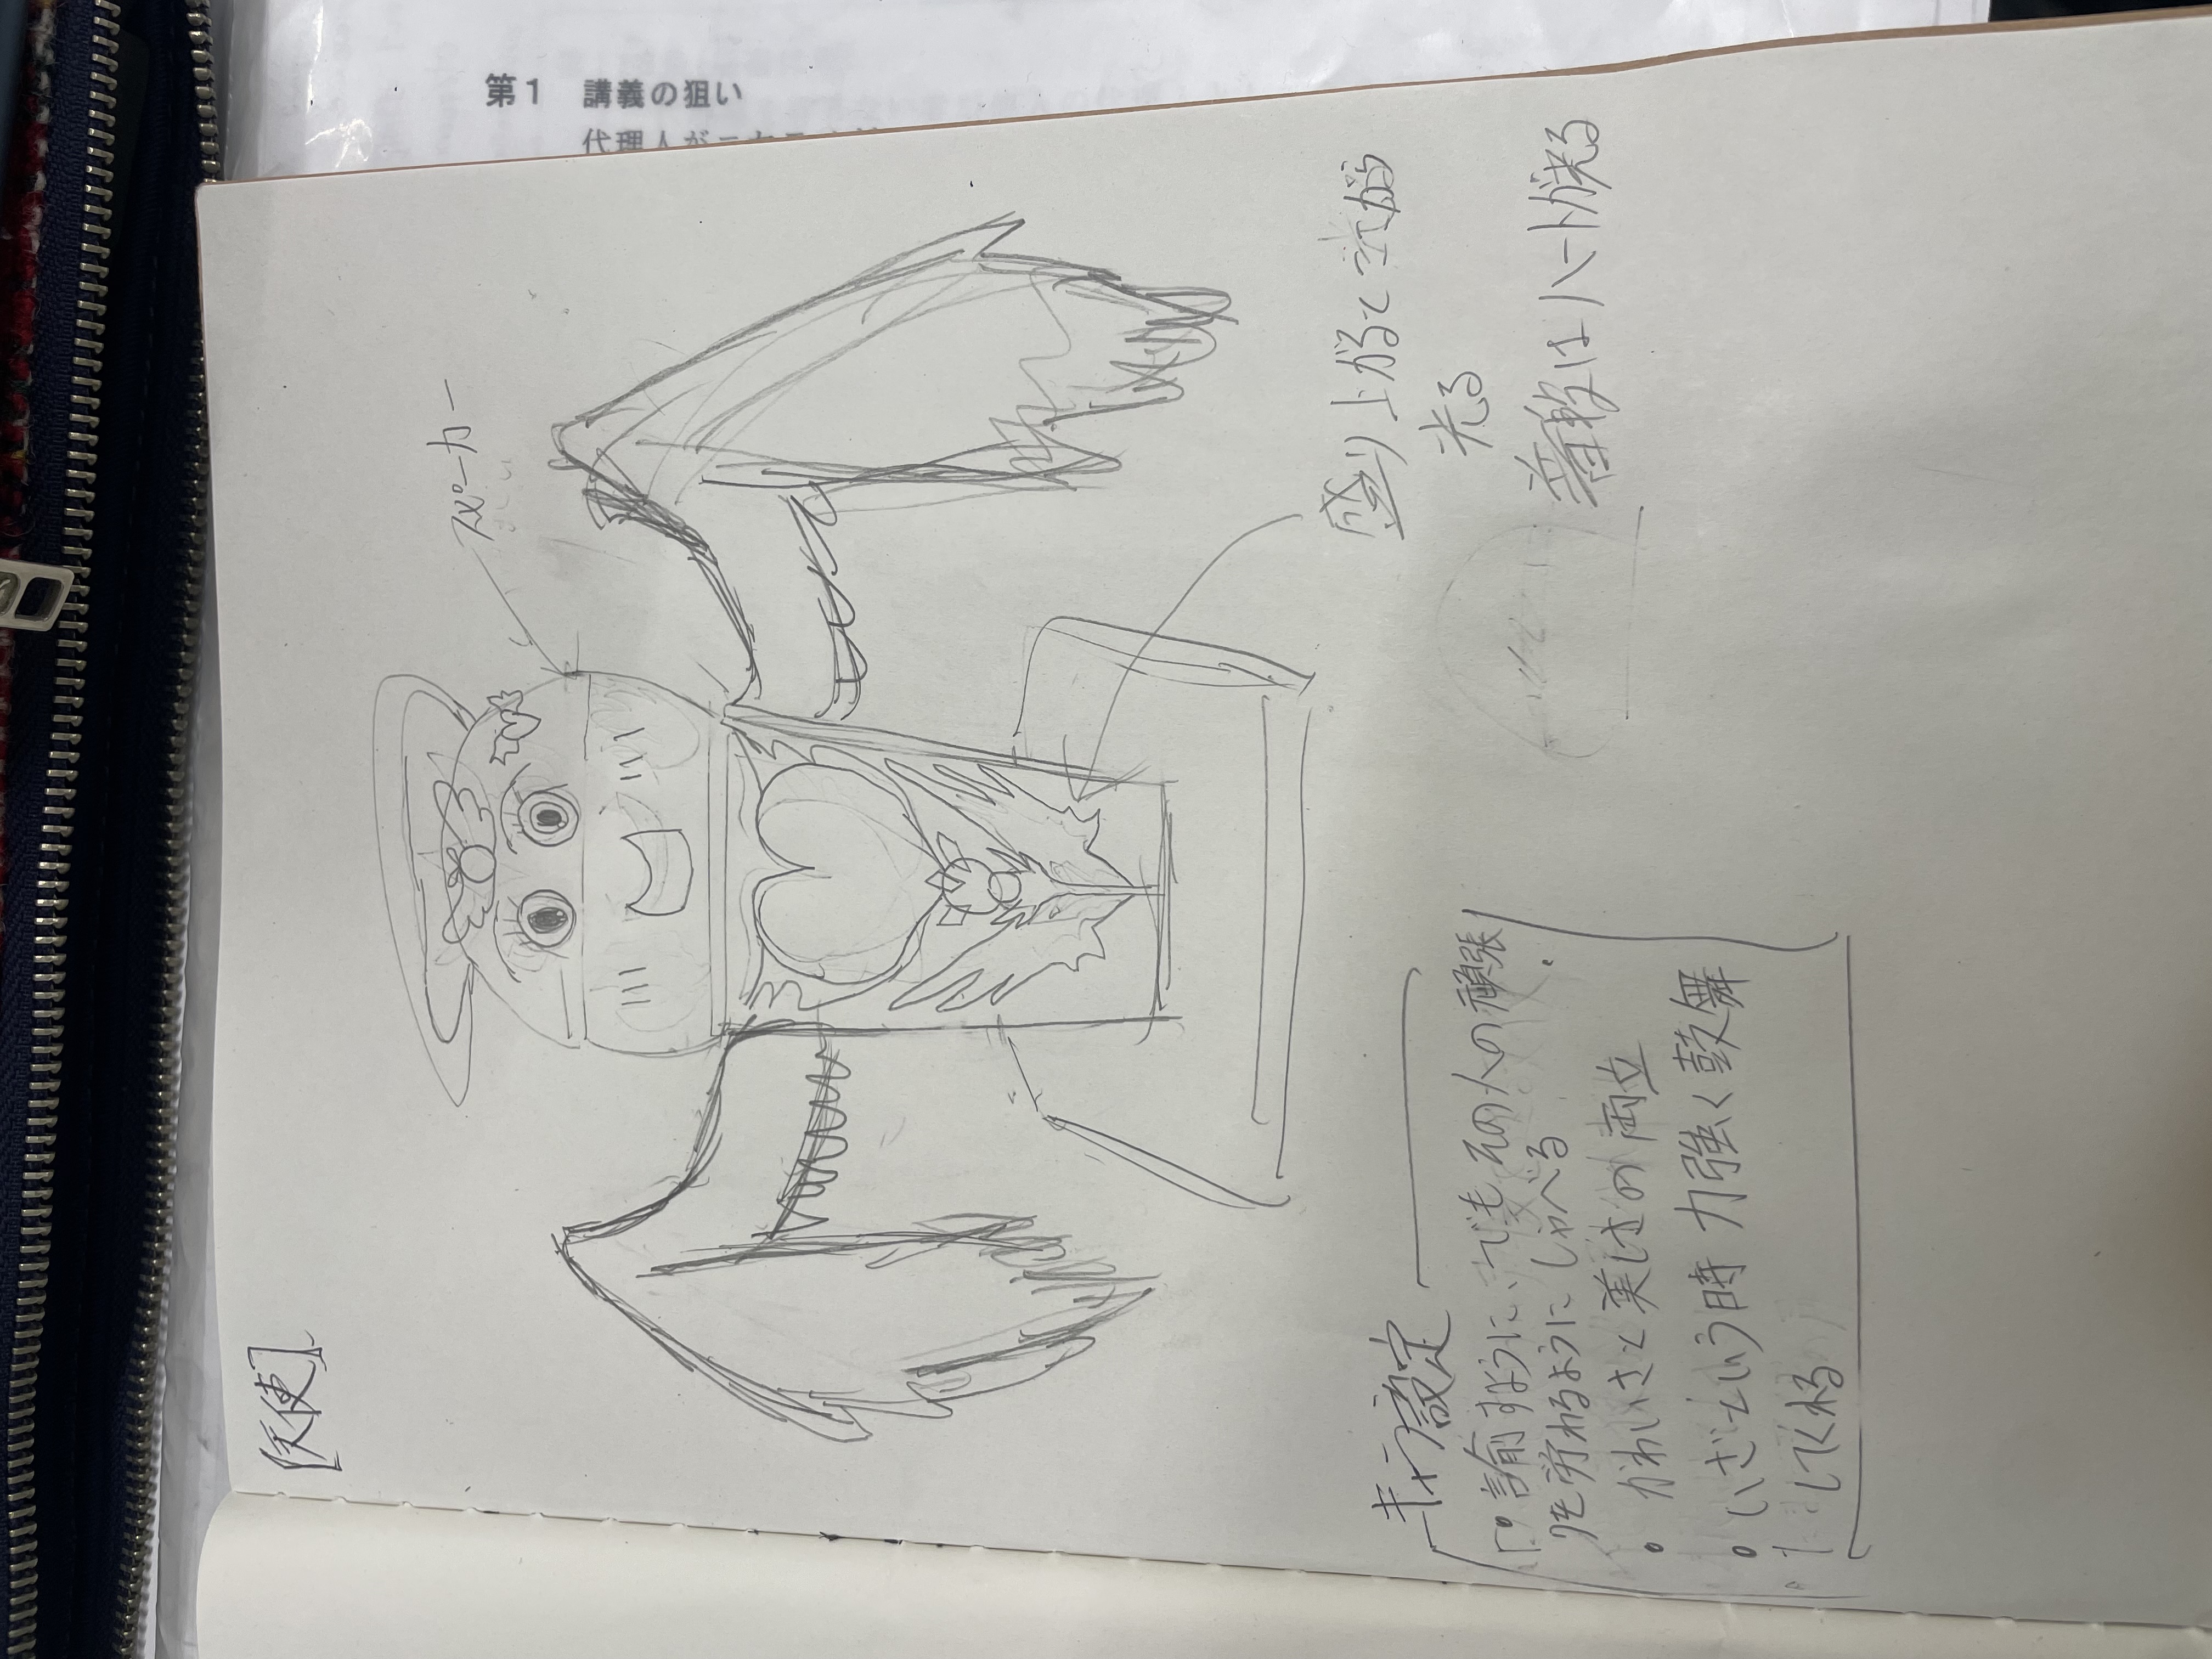 [天使]
スピーカー
盛り上がるとここがら
光る
普段はハートが光る
キャラ設定
諭すように、でもその人の頑張
りを労わるようにしゃべる
かわいさと美しさの両立
いざという時 力強く鼓舞
してくれる
第1 講義の狙い
代理人が